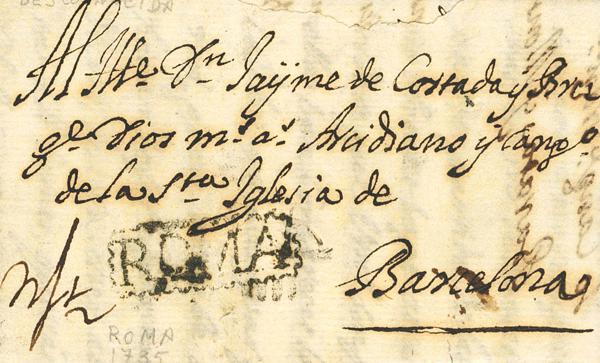 DESCONOCIDA
Al Ille. Dn Jayme de Cortada y Bru
ge. Dios ms. as. Arcidiano y Cango.
de la Sta Iglesia de
ROMA
Barcelona
ROMA
1735